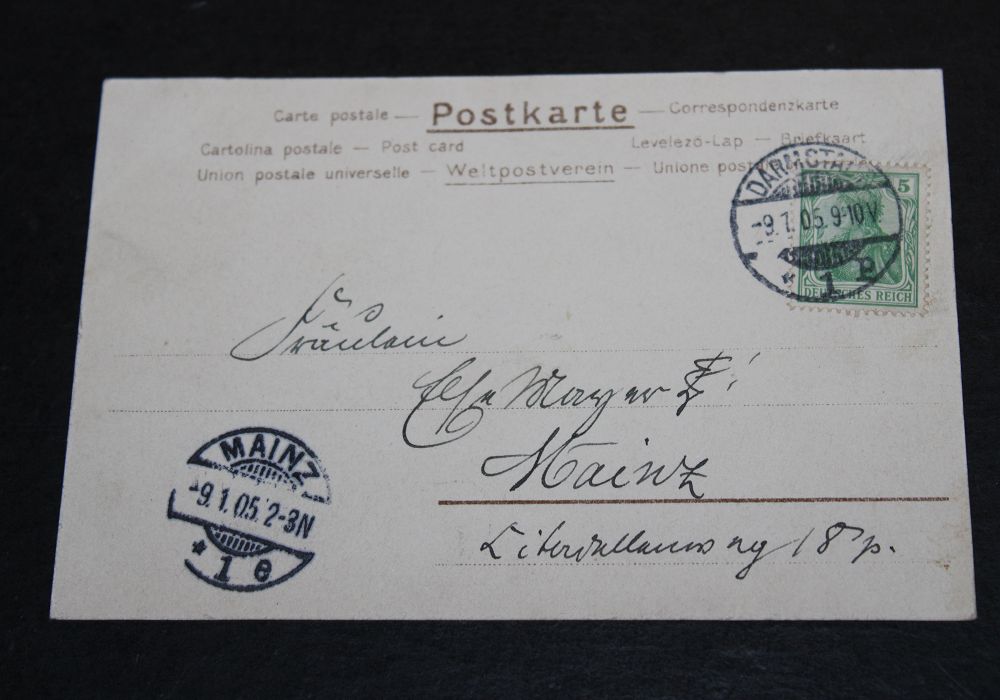 Carte postale — Postkarte — Correspondenzkarte
Cartolina postale — Post card Levelező-Lap — Briefkaart
Union postale universelle — Weltpostverein — Unione post
DARMSTA
-9.1.05.9-10V.
* 1 e
5
DEUTSCHES REICH
Fräulein
Else Mayer
Mainz
18 p.
MAINZ
-9.1.05.2-3N
* 1 e